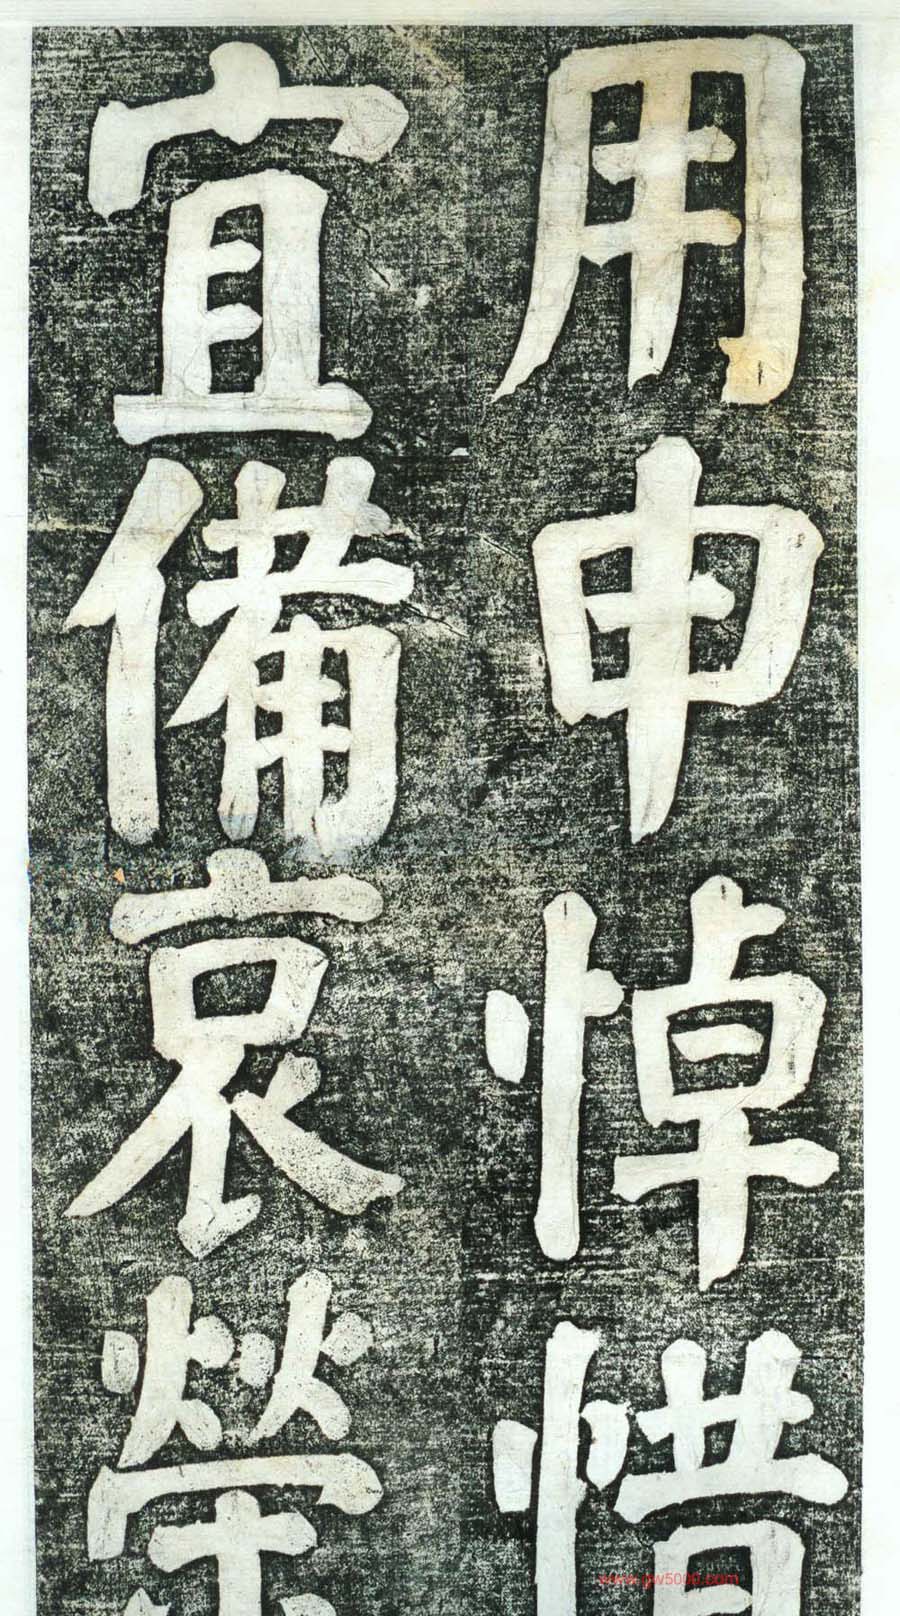 用申悼惜
宜備哀榮
www.gw5000.com